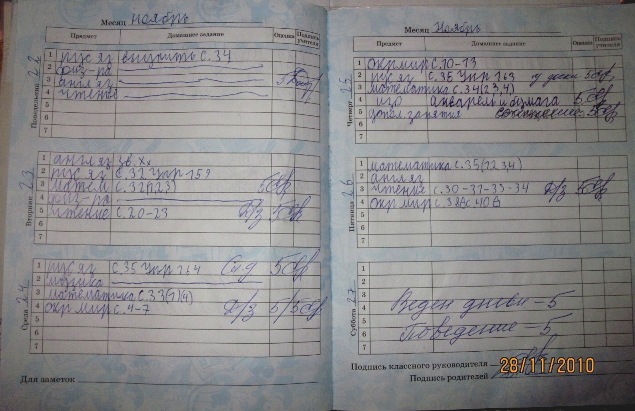 Месяц ноябрь
Предмет Домашнее задание Оценка Подпись учителя
Понедельник 22
1 рус яз выучить с.34
2 физ-ра
3 англ яз
4 чтение
5
6
7
Вторник 23
1 англ яз
2 рус яз с.32 упр 159
3 матем с.32(1,2,3)
4 физ-ра
5 чтение с.20-23 д/з 5
6
7
Среда 24
1 рус яз с.35 упр 164 5
2
3 математика с.33
4 окр мир с.4-7 д/з 5/5
5
6
7
Для заметок
Месяц ноябрь
Предмет Домашнее задание Оценка Подпись учителя
Четверг 25
1 окр мир с.10-13
2 рус яз с.35 упр 163 у доски 5
3 математика с.34(2,3,4)
4 изо акварель и бумага 5
5 допол занятия 5
6
7
Пятница 26
1 математика с.35
2 англ яз
3 чтение с.30-31-33-34 д/з 5
4 окр мир с.38
5
6
7
Суббота 27
1
2
3
4 Веден дневн – 5
5
6 Поведение – 5
7
Подпись классного руководителя
Подпись родителей
28/11/2010